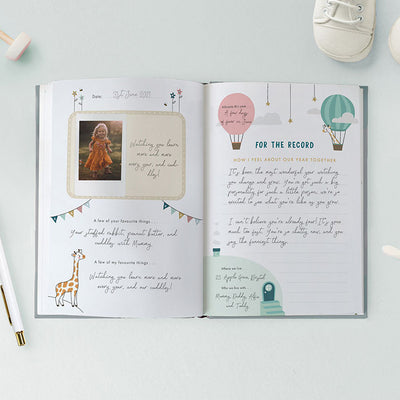 Date: 21st June 2021
Watching you learn
more and more
every year, and our
cuddles!
A few of your favourite things . . .
Your stuffed rabbit, peanut butter, and
cuddles with Mummy.
A few of my favourite things . . .
Watching you learn more and more
every year, and our cuddles!
A few days
of snow in June
FOR THE RECORD
HOW I FEEL ABOUT OUR YEAR TOGETHER
It's been the most wonderful year watching
you change and grow. You've got such a big
personality for such a little person, we're so
excited to see what you're like as you grow.
I can't believe you're already four! It's gone
much too fast. You're so chatty now, and you
say the funniest things.
Where we live
23 Apple Grove, Bristol
Who we live with
Mummy, Daddy, Alfie and
Teddy